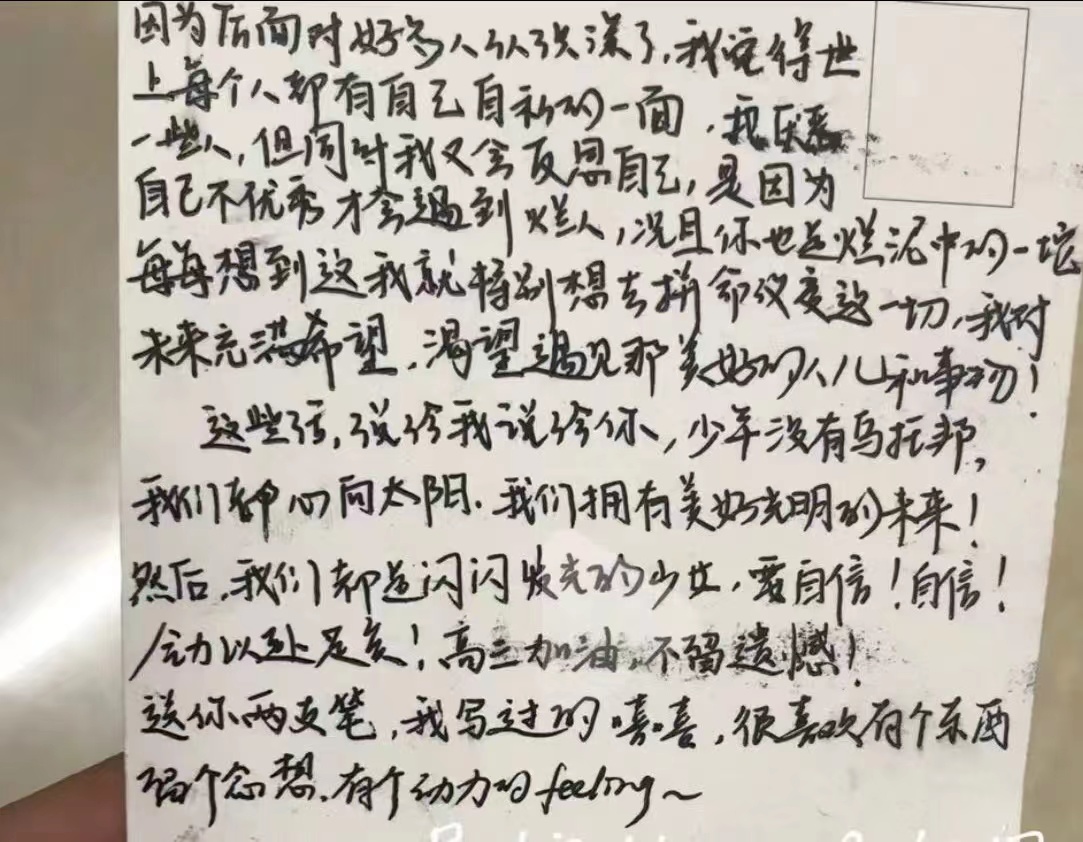 因为后面对好多人认识深了,我觉得世
上每个人都有自己自私的一面,我厌恶
一些人,但同时我又会反思自己,是因为
自己不优秀才会遇到烂人,况且你也是烂泥中的一坨
每每想到这我就特别想去拼命改变这一切,我对
未来充满希望,渴望遇见那美好的人儿和事物!
这些话,说给我说给你,少年没有乌托邦,
我们都心向太阳.我们拥有美好光明的未来!
然后,我们都是闪闪发光的少女,要自信!自信!
全力以赴是爻!高三加油,不留遗憾!
送你两支笔,我写过的嘻嘻,很喜欢有个东西
留个念想.有个动力的feeling~